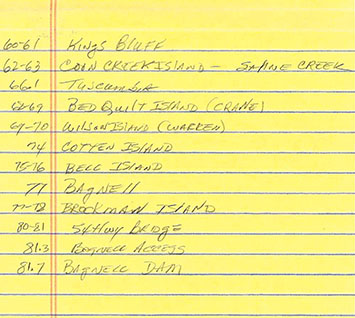 60-61 Kings Bluff
62-63 Coon Creek Island - Saline Creek
66.1 Tuscumbia
68-69 Bed Quilt Island (Crane)
69-70 Wilson Island (Warren)
74 Cotten Island
75-76 Bell Island
77 Bagnell
77-78 Brockman Island
80-81 54 Hwy Bridge
81.3 Bagnell Access
81.7 Bagnell Dam